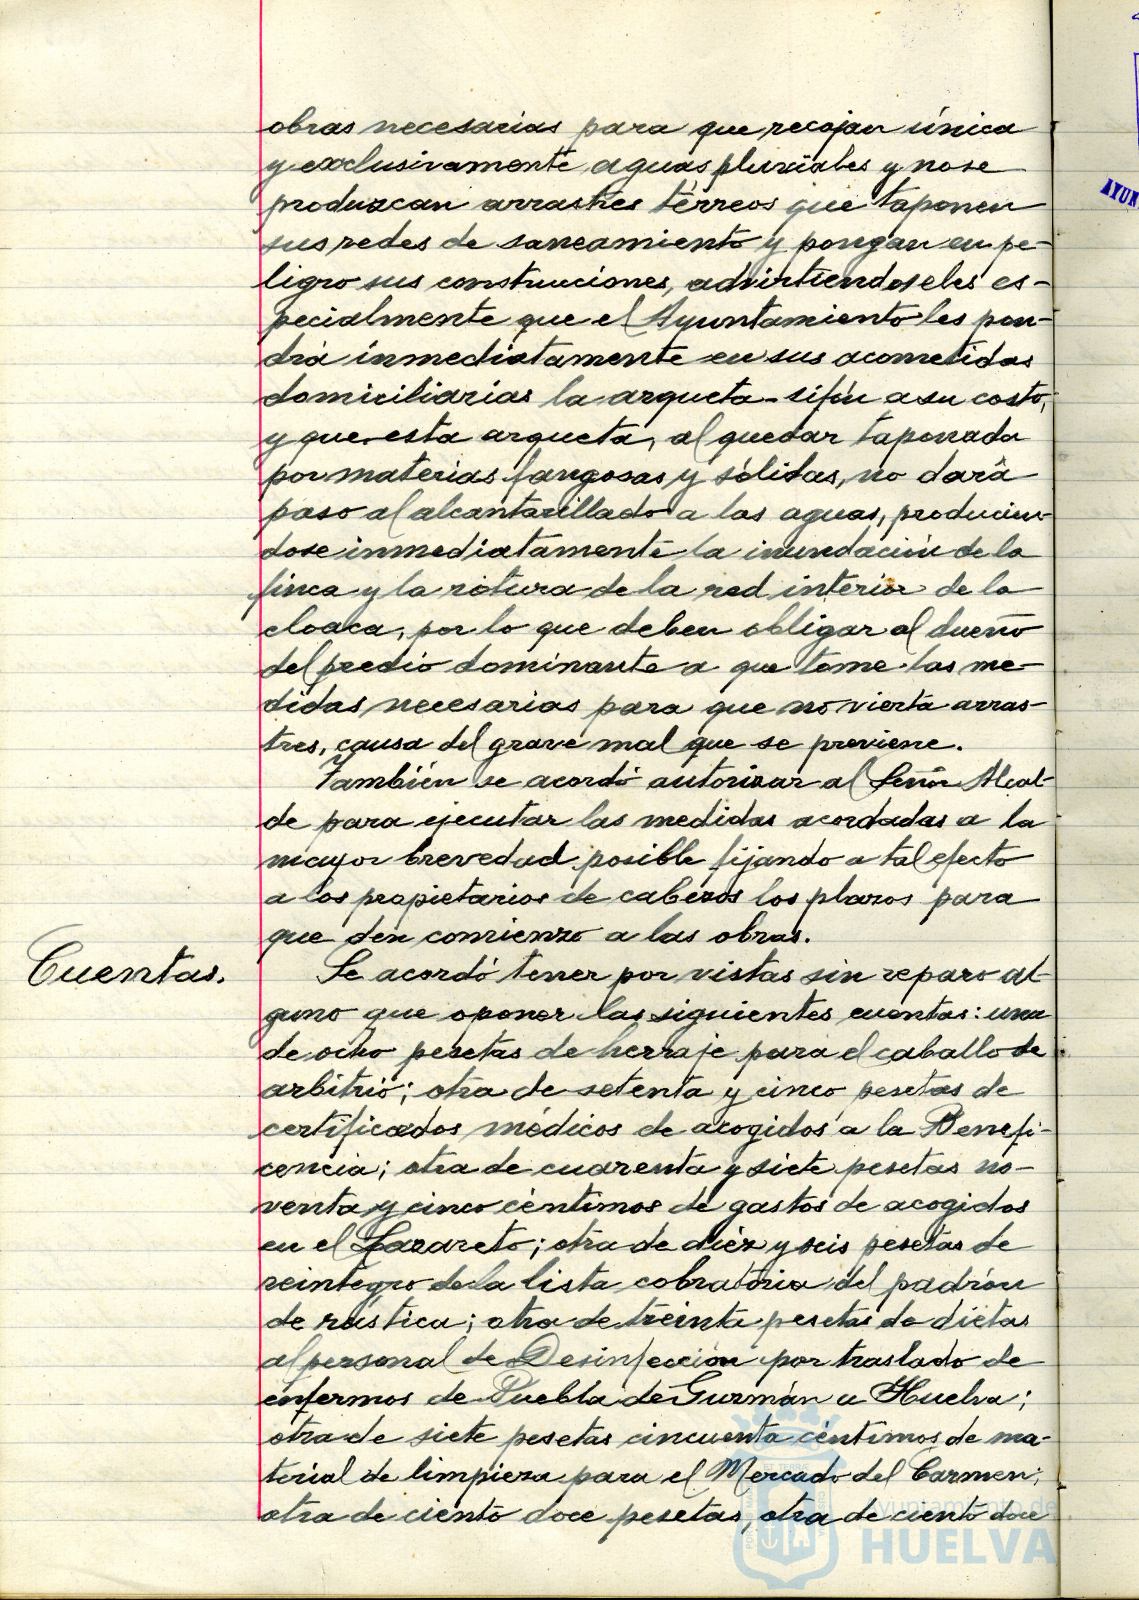 obras necesarias para que recojan única
y exclusivamente aguas pluviales y no se
produzcan arrastres térreos que taponen
sus redes de saneamiento y pongan en pe-
ligro sus construcciones, advirtiendoseles es-
pecialmente que el Ayuntamiento les pon-
drá inmediatamente en sus acometidas
domiciliarias la arqueta-sifón a su costo,
y que esta arqueta, al quedar taponada
por materias fangosas y sólidas, no dará
paso al alcantarillado a las aguas, producien-
dose inmediatamente la inundación de la
finca y la rotura de la red interior de la
cloaca, por lo que deben obligar al dueño
del predio dominante a que tome las me-
didas necesarias para que no vierta arras-
tres, causa del grave mal que se previene.
También se acordó autorizar al Señor Alcal-
de para ejecutar las medidas acordadas a la
mayor brevedad posible fijando a tal efecto
a los propietarios de cabezos los plazos para
que den comienzo a las obras.
Cuentas.
Se acordó tener por vistas sin reparo al-
guno que oponer las siguientes cuentas: una
de ocho pesetas de herraje para el caballo de
arbitrio; otra de setenta y cinco pesetas de
certificados médicos de acogidos a la Benefi-
cencia; otra de cuarenta y siete pesetas no-
venta y cinco céntimos de gastos de acogidos
en el Lazareto; otra de diez y seis pesetas de
reintegro de la lista cobratoria del padrón
de rústica; otra de treinta pesetas de dietas
al personal de Desinfección por traslado de
enfermos de Puebla de Guzmán a Huelva;
otra de siete pesetas cincuenta céntimos de ma-
terial de limpieza para el Mercado del Carmen;
otra de ciento doce pesetas, otra de ciento doce
Ayuntamiento de
HUELVA
AYUN